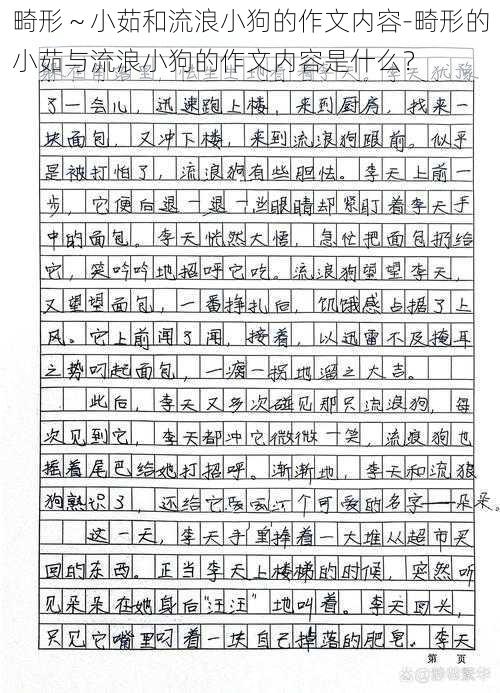 畸形～小茹和流浪小狗的作文内容-畸形的
小茹与流浪小狗的作文内容是什么？
了一会儿，迅速跑上楼，来到厨房，找来一
块面包，又冲下楼，来到流浪狗跟前。似乎
是被打怕了，流浪狗有些胆怯。李天上前一
步，它便后退一退一双眼睛却紧盯着李天手
中的面包。李天恍然大悟，急忙把面包扔给
它，笑吟吟地招呼它吃。流浪狗望望李天，
又望望面包，一番挣扎后，饥饿感占据了上
风。它上前闻了闻，接着，以迅雷不及掩耳
之势叼起面包，一瘸一拐地溜之大吉。
此后，李天又多次碰见那只流浪狗，每
次见到它，李天都冲它微微一笑，流浪狗也
摇着尾巴给她打招呼。渐渐地，李天和流狼
狗熟识了，还给它取了个可爱的名字——朵朵。
这一天，李天手里捧着一大堆从超市买
回的东西。正当李天上楼梯的时候，突然听
见朵朵在她身后"汪汪"地叫着。李天回头，
只见它嘴里叼着一块自己掉落的肥皂。李天
第 页